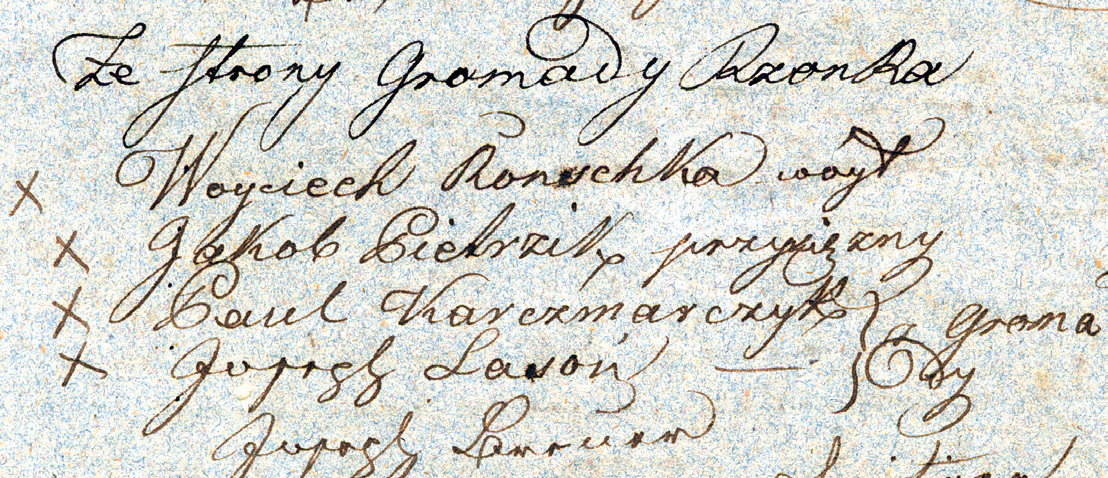 Ze strony Gromady Rzonka
X Woyciech Ronschka wóyt
X Jakob Pietrzik przysiężny
X Paul Karczmarczyk } z Groma
X Joseph Lasoń — } dy
Joseph Breuer